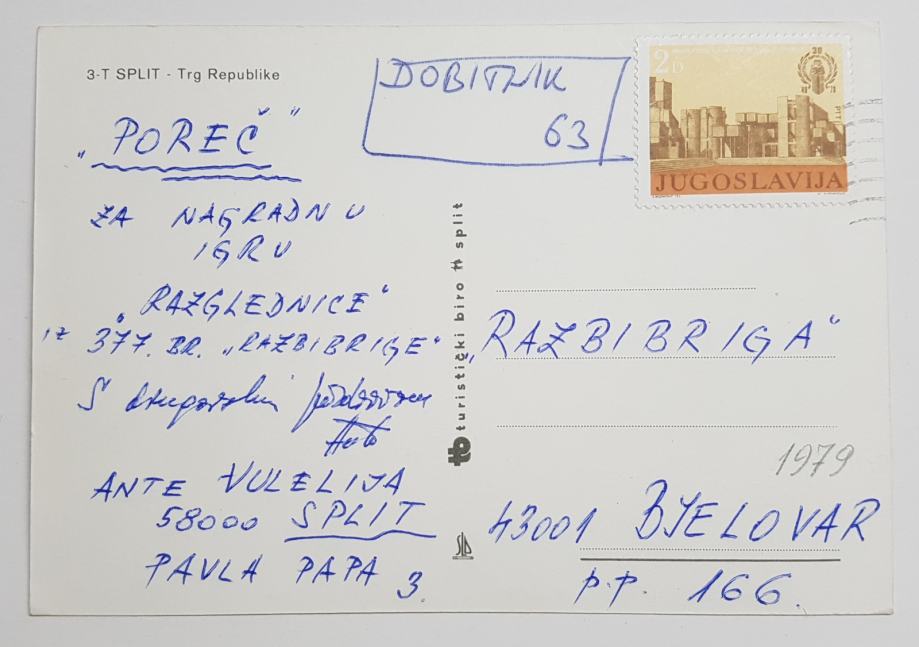 3-T SPLIT - Trg Republike
DOBITNIK
63
2 D
JUGOSLAVIJA
„POREČ“
ZA NAGRADNU
IGRU
„RAZGLEDNICE“
IZ 377. BR. „RAZBIBRIGE“
S drugarskim pozdravom
ANTE VULELIJA
58000 SPLIT
PAVLA PAPA 3.
turistički biro split
„RAZBIBRIGA“
1979
43001 BJELOVAR
p.p. 166.